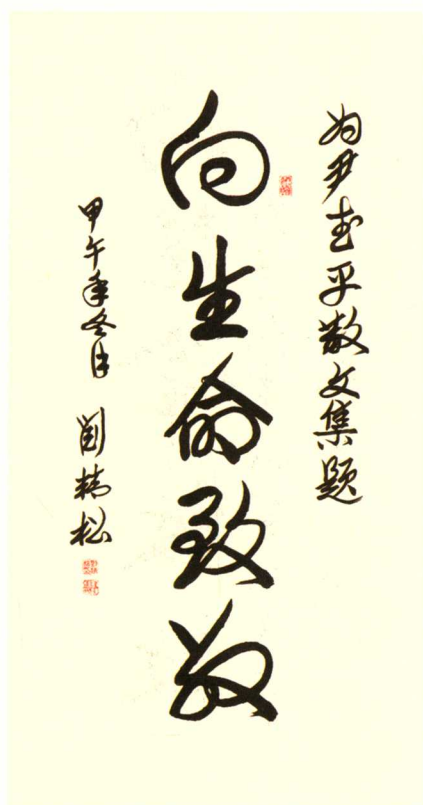 为尹武平散文集题
向生命致敬
甲午年冬月 阎精松